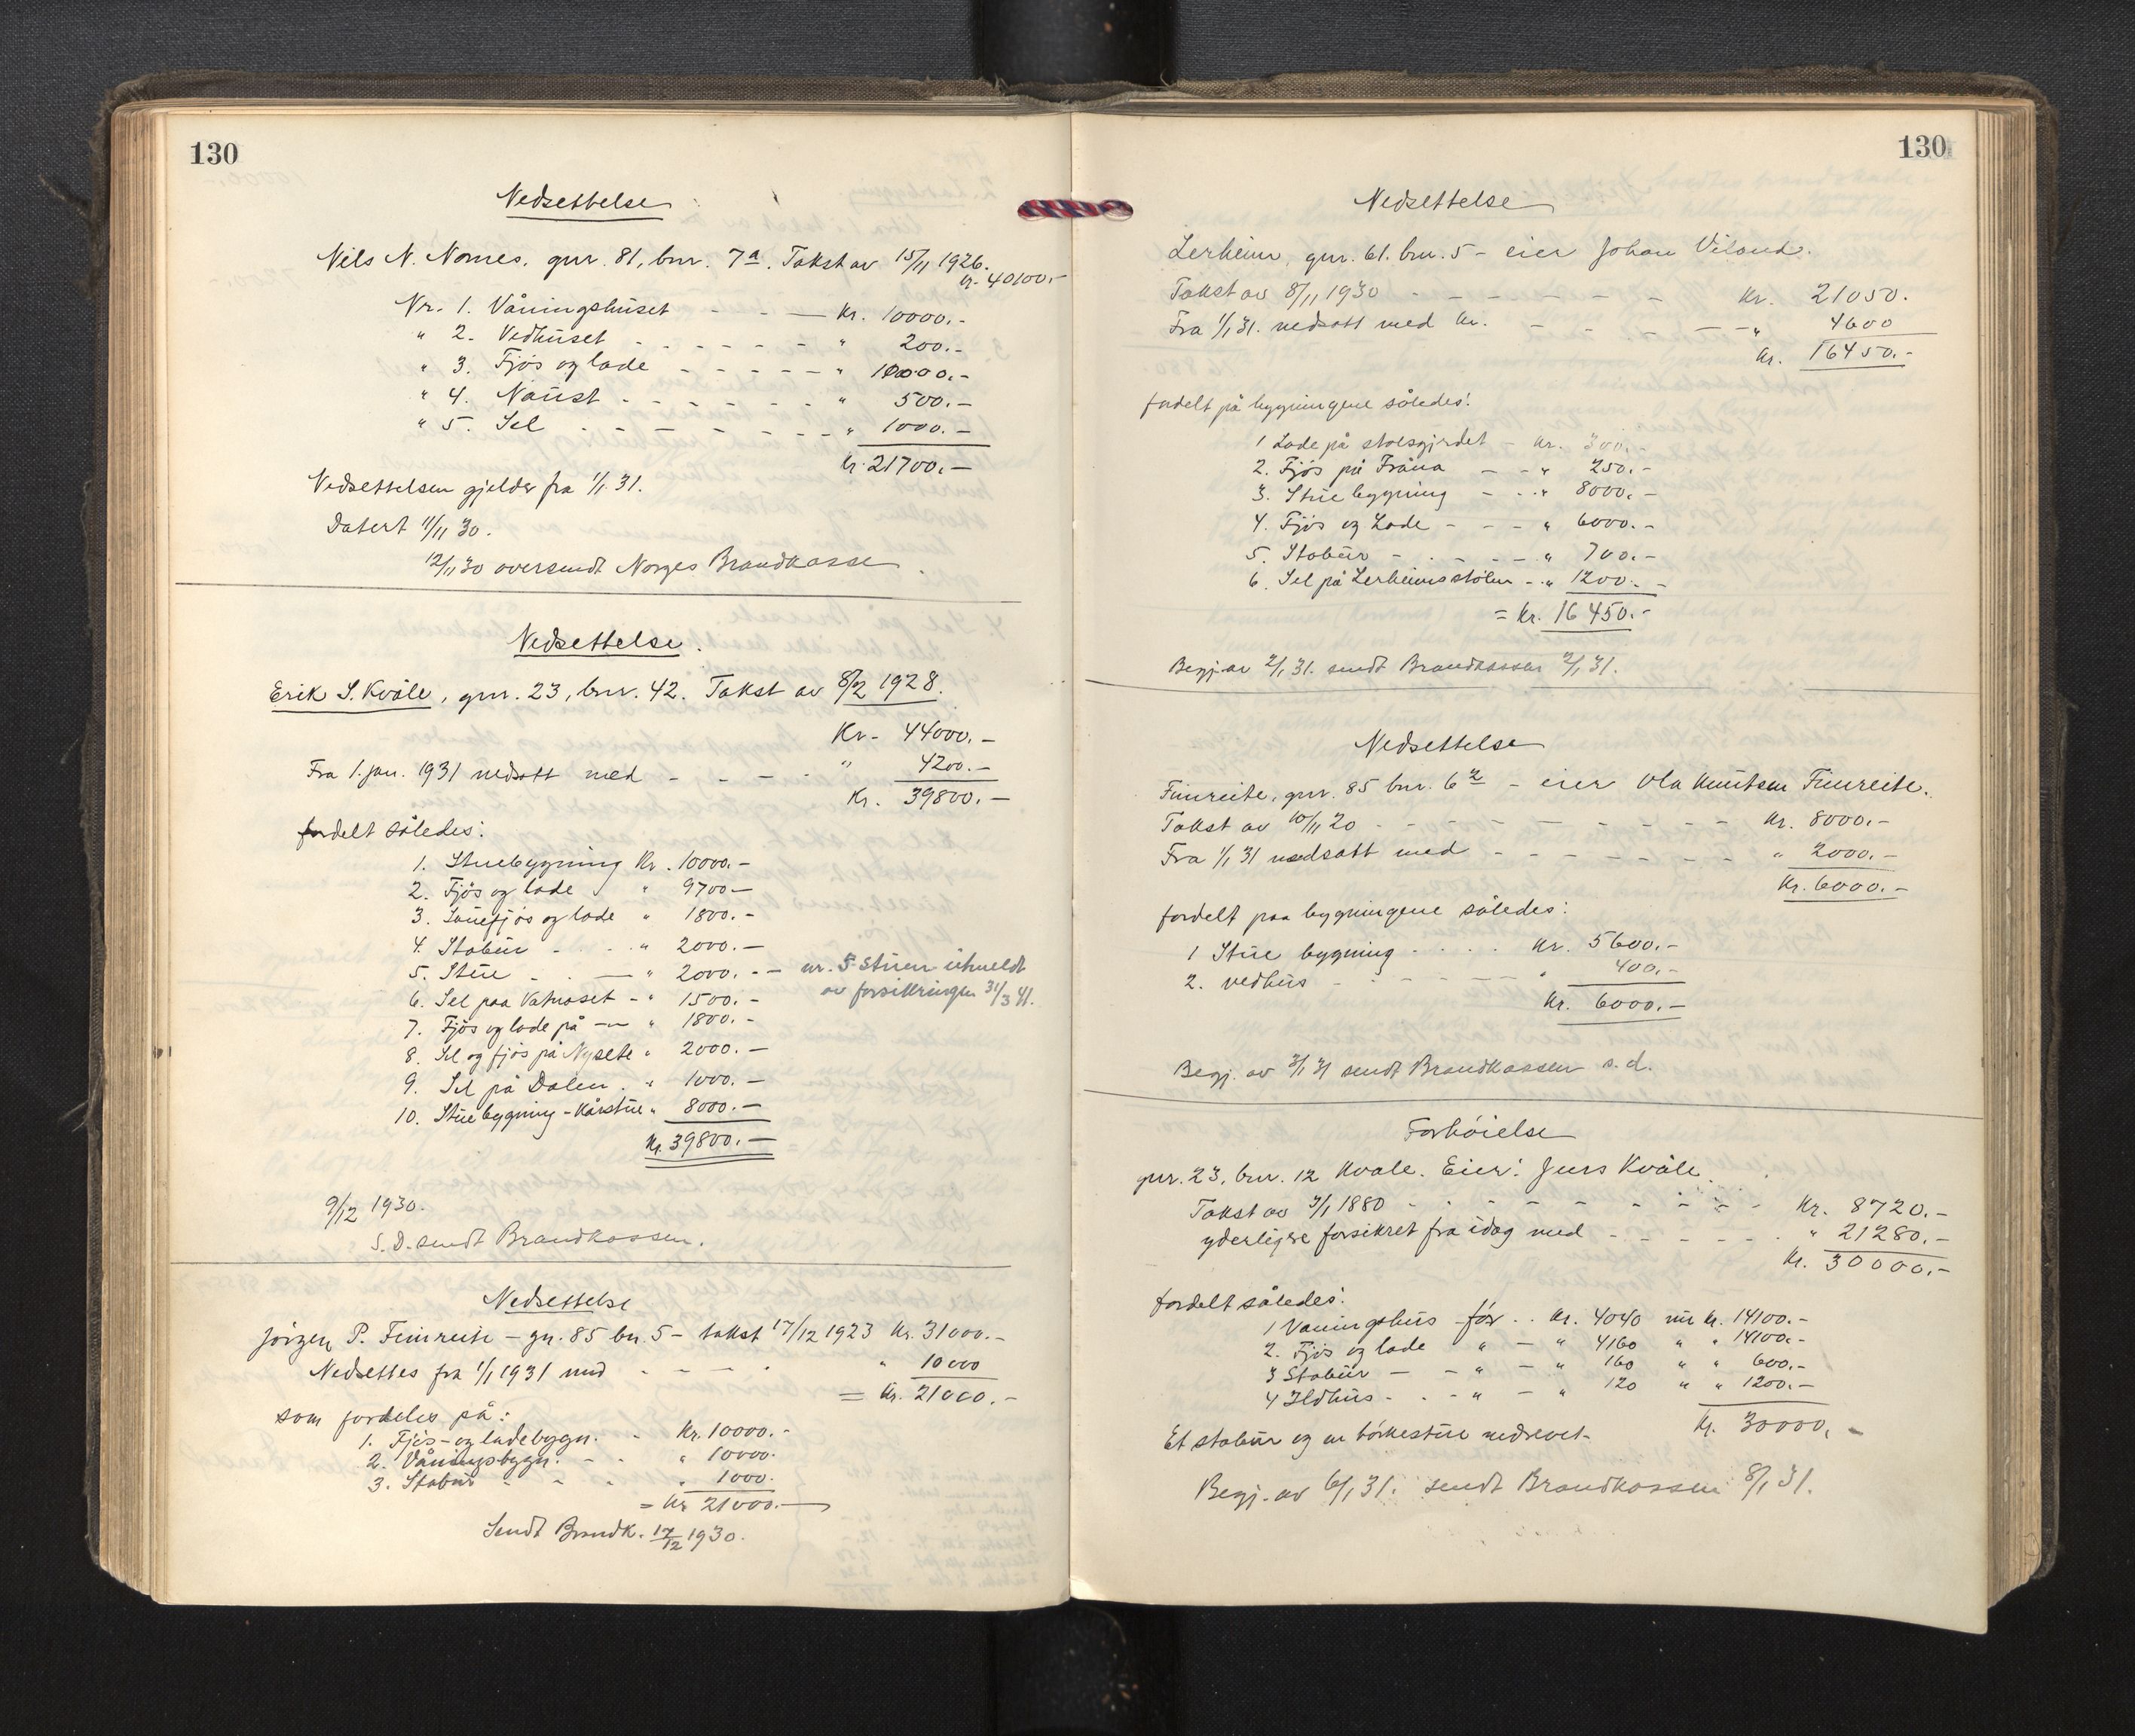 130
Nedsettelse
Nils N. Nornes, gnr. 81, bnr. 7a. Takst av 15/11 1926.
kr. 40100.-
Nr. 1. Våningshuset - - — Kr. 10000.-
" 2. Vedhuset - - - - - - " 200.-
" 3. Fjøs og lade - - - - - " 10000.-
" 4. Naust - - - - - - " 500.-
" 5. Sel - - - - - - - " 1000.-
Kr. 21700.-
Nedsettelsen gjelder fra 1/1 31.
Datert 11/11 30.
12/11 30 oversendt Norges Brandkasse.
Nedsettelse.
Erik S. Kvåle, gnr. 23, bnr. 42. Takst av 8/2 1928.
Kr. 44000.-
Fra 1. jan. 1931 nedsatt med - - - - " 4200.-
Kr. 39800.-
fordelt således:
1. Stuebygning Kr. 10000.-
2. Fjøs og lade " 9700-
3. Sauefjøs og lade " 1800.-
4. Stabur - . . . " 2000.-
5. Stue - . — " 2000.- - nr. 5 stuen utmeldt
av forsikringen 31/3 41.
6. Sel paa Vatnaset - " 1500.-
7. Fjøs og lade på —"— " 1800.-
8. Sel og fjøs på Nysete " 2000.-
9. Sel på Dalen . " 1000.-
10. Stuebygning - Kårstue " 8000.-
Kr. 39800.-
9/12 1930.
S.D. sendt Brandkassen.
Nedsettelse
Jørgen P. Fimreite - gn. 85 bn. 5 - takst 17/12 1923 Kr. 31000.-
Nedsettes fra 1/1 1931 med - - - - . " 10000
= Kr. 21000.-
som fordeles på:
1. Fjøs- og ladebygn. - Kr. 10000.-
2. Våningsbygn. - - " 10000.
3. Stabur - - - - " 1000.
= Kr 21000.-
Sendt Brandk. 17/12 1930.
130
Nedsettelse
Lerheim, gnr. 61. bnr. 5 - eier Johan Viland.
Takst av 8/11 1930 - - - - - - - Kr. 21050.
Fra 1/1 31. nedsatt med kr. - - - - - - " 4600
Kr. 16450.-
fordelt på bygningene således:
1 Lade på stølsgjerdet - Kr. 300.-
2. Fjøs på Fråna - - " 250.-
3. Stuebygning - - . " 8000.-
4. Fjøs og Lade - - - " 6000.-
5. Stabur - . - - - " 700.-
6. Sel på Lerheimsstølen - " 1200.-
= Kr. 16450.-
Begj. av 2/1 31. sendt Brandkassen 2/1 31.
Nedsettelse
Fimreite, gnr. 85 bnr. 6² - eier Ola Knutsen Fimreite.
Takst av 10/11 20 - - - - - - - - - Kr. 8000.-
Fra 1/1 31 nedsatt med - - - - - - - " 2000.-
Kr. 6000.-
fordelt paa bygningene således:
1 Stue bygning - . . . Kr. 5600.-
2. vedhus - - - - - " 400.-
Kr. 6000.-
Begj. av 3/1 31 sendt Brandkassen s.d.
Forhøielse
gnr. 23, bnr. 12 Kvale. Eier: Jens Kvåle.
Takst av 7/1 1880 - - - - - - - - - Kr. 8720.-
yderligere forsikret fra idag med - - - - - - " 21280.-
Kr. 30000.-
fordelt således:
1 Vaningshus før . . Kr. 4040 nu Kr. 14100.-
2. Fjøs og lade " - " 4160 " " 14100.-
3 Stabur - - " - " 160 " " 600.-
4 Ildhus - . - " - " 120 " " 1200.-
Kr. 30000.-
Et stabur og en tørkestue nedrevet.
Begj. av 6/1 31. sendt Brandkassen 8/1 31.